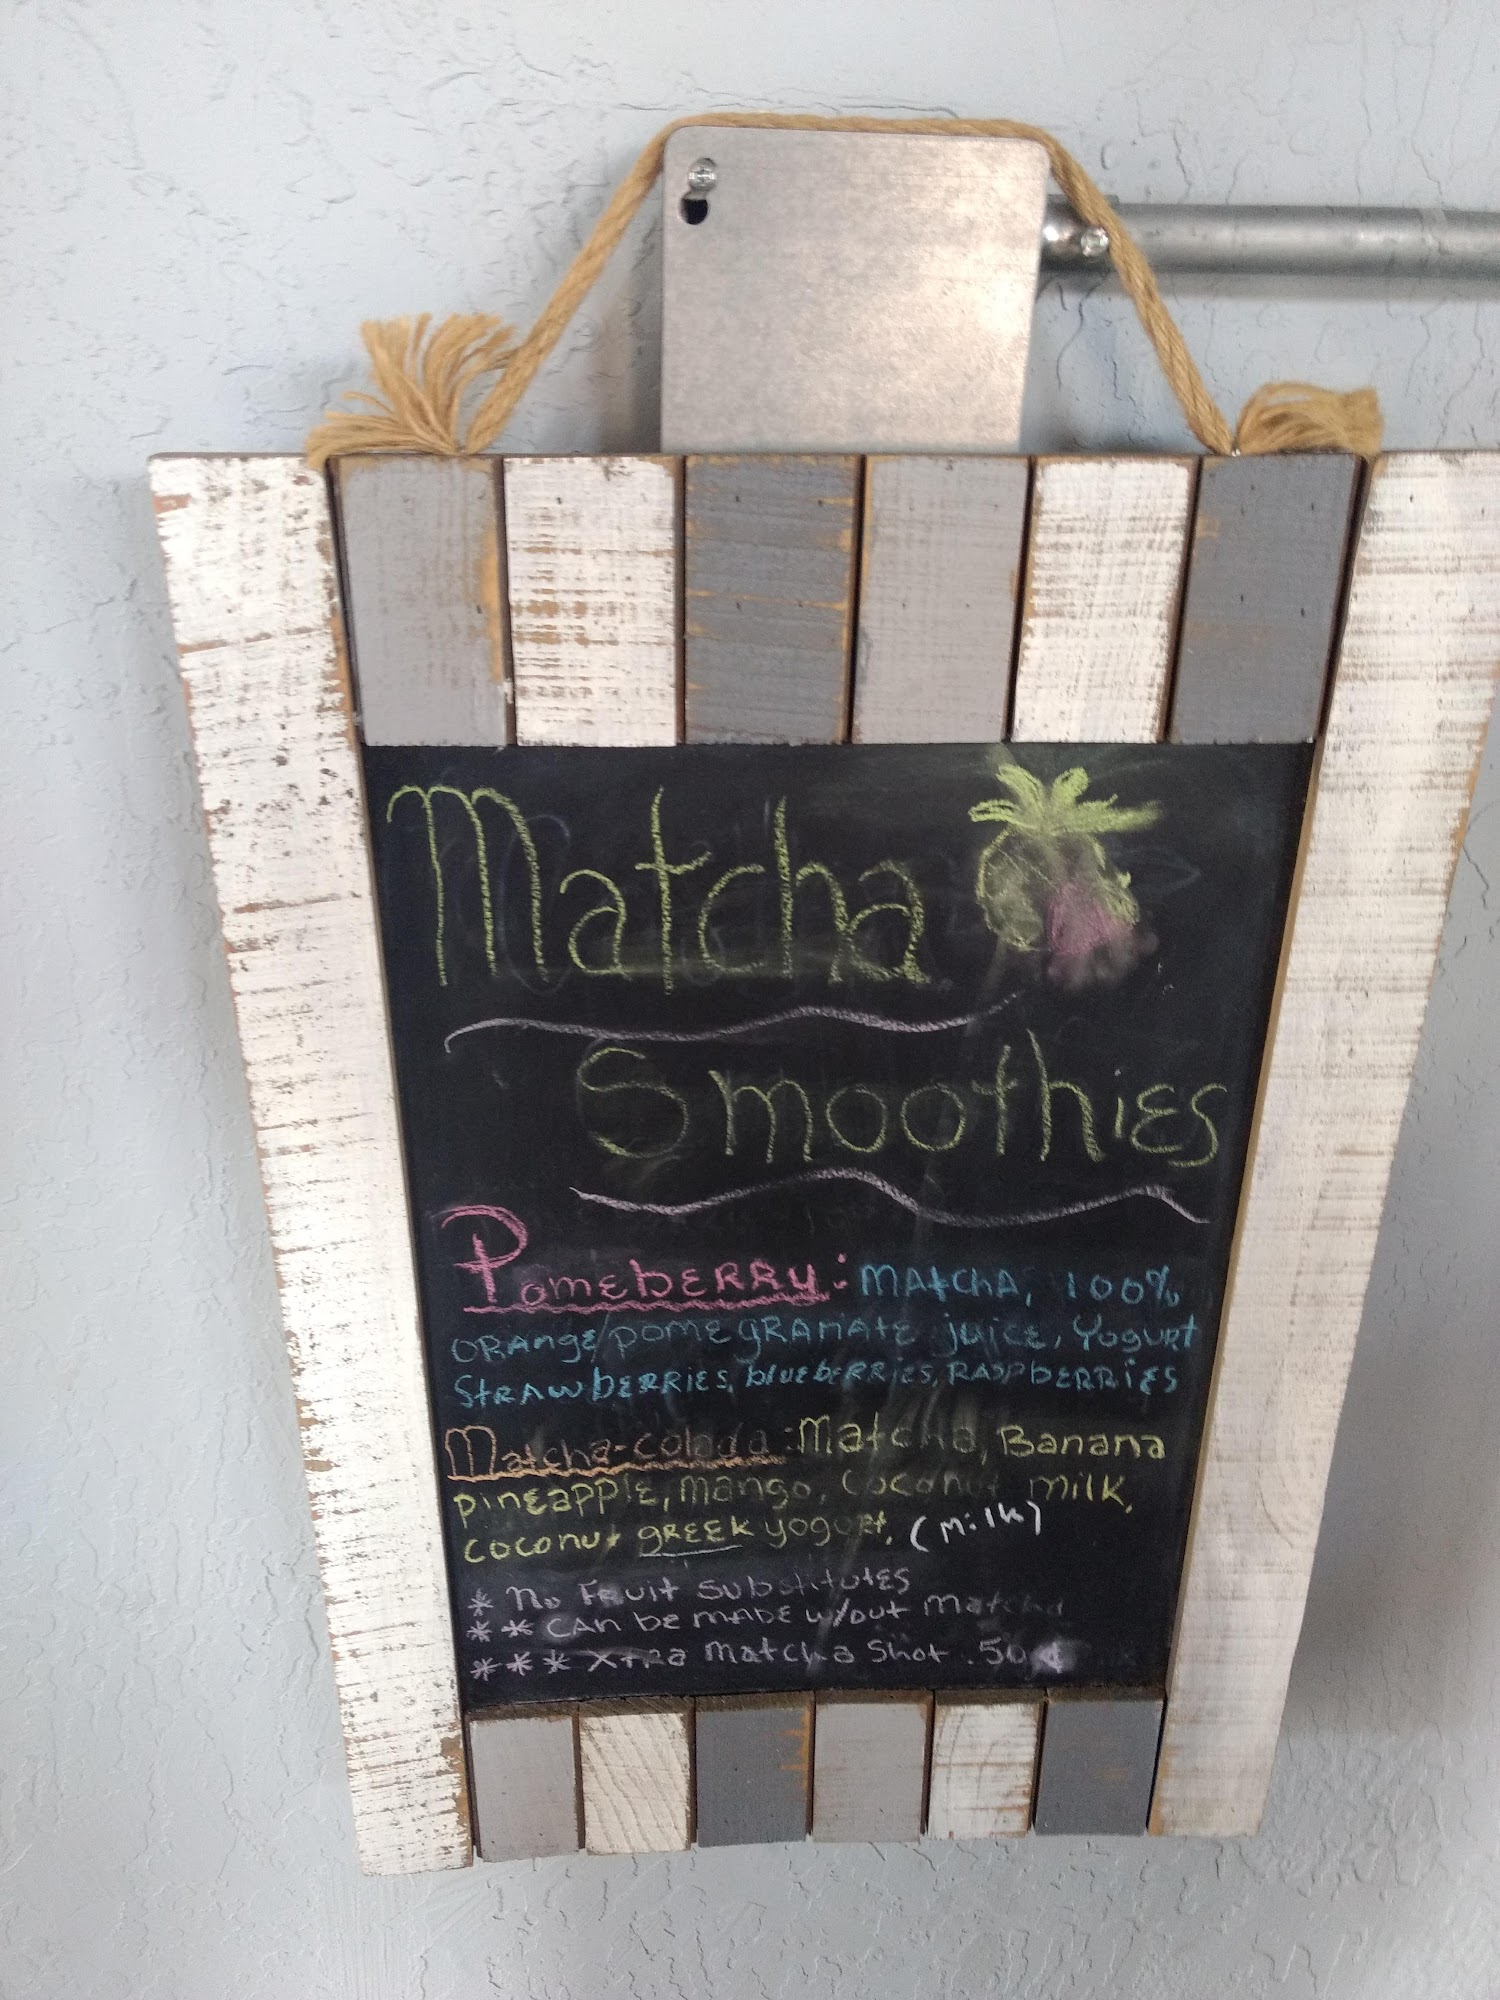 Matcha
Smoothies
Pomeberry: Matcha, 100%
orange/pomegranate juice, Yogurt
Strawberries, blueberries, Raspberries
Matcha-colada: Matcha, Banana
pineapple, mango, coconut milk,
coconut greek yogurt, (Milk)
* No Fruit Substitutes
** Can be made w/out matcha
*** Xtra matcha shot .50¢